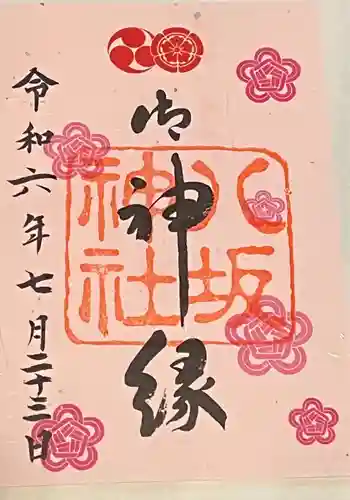 御神縁
八坂神社
令和六年七月二十三日